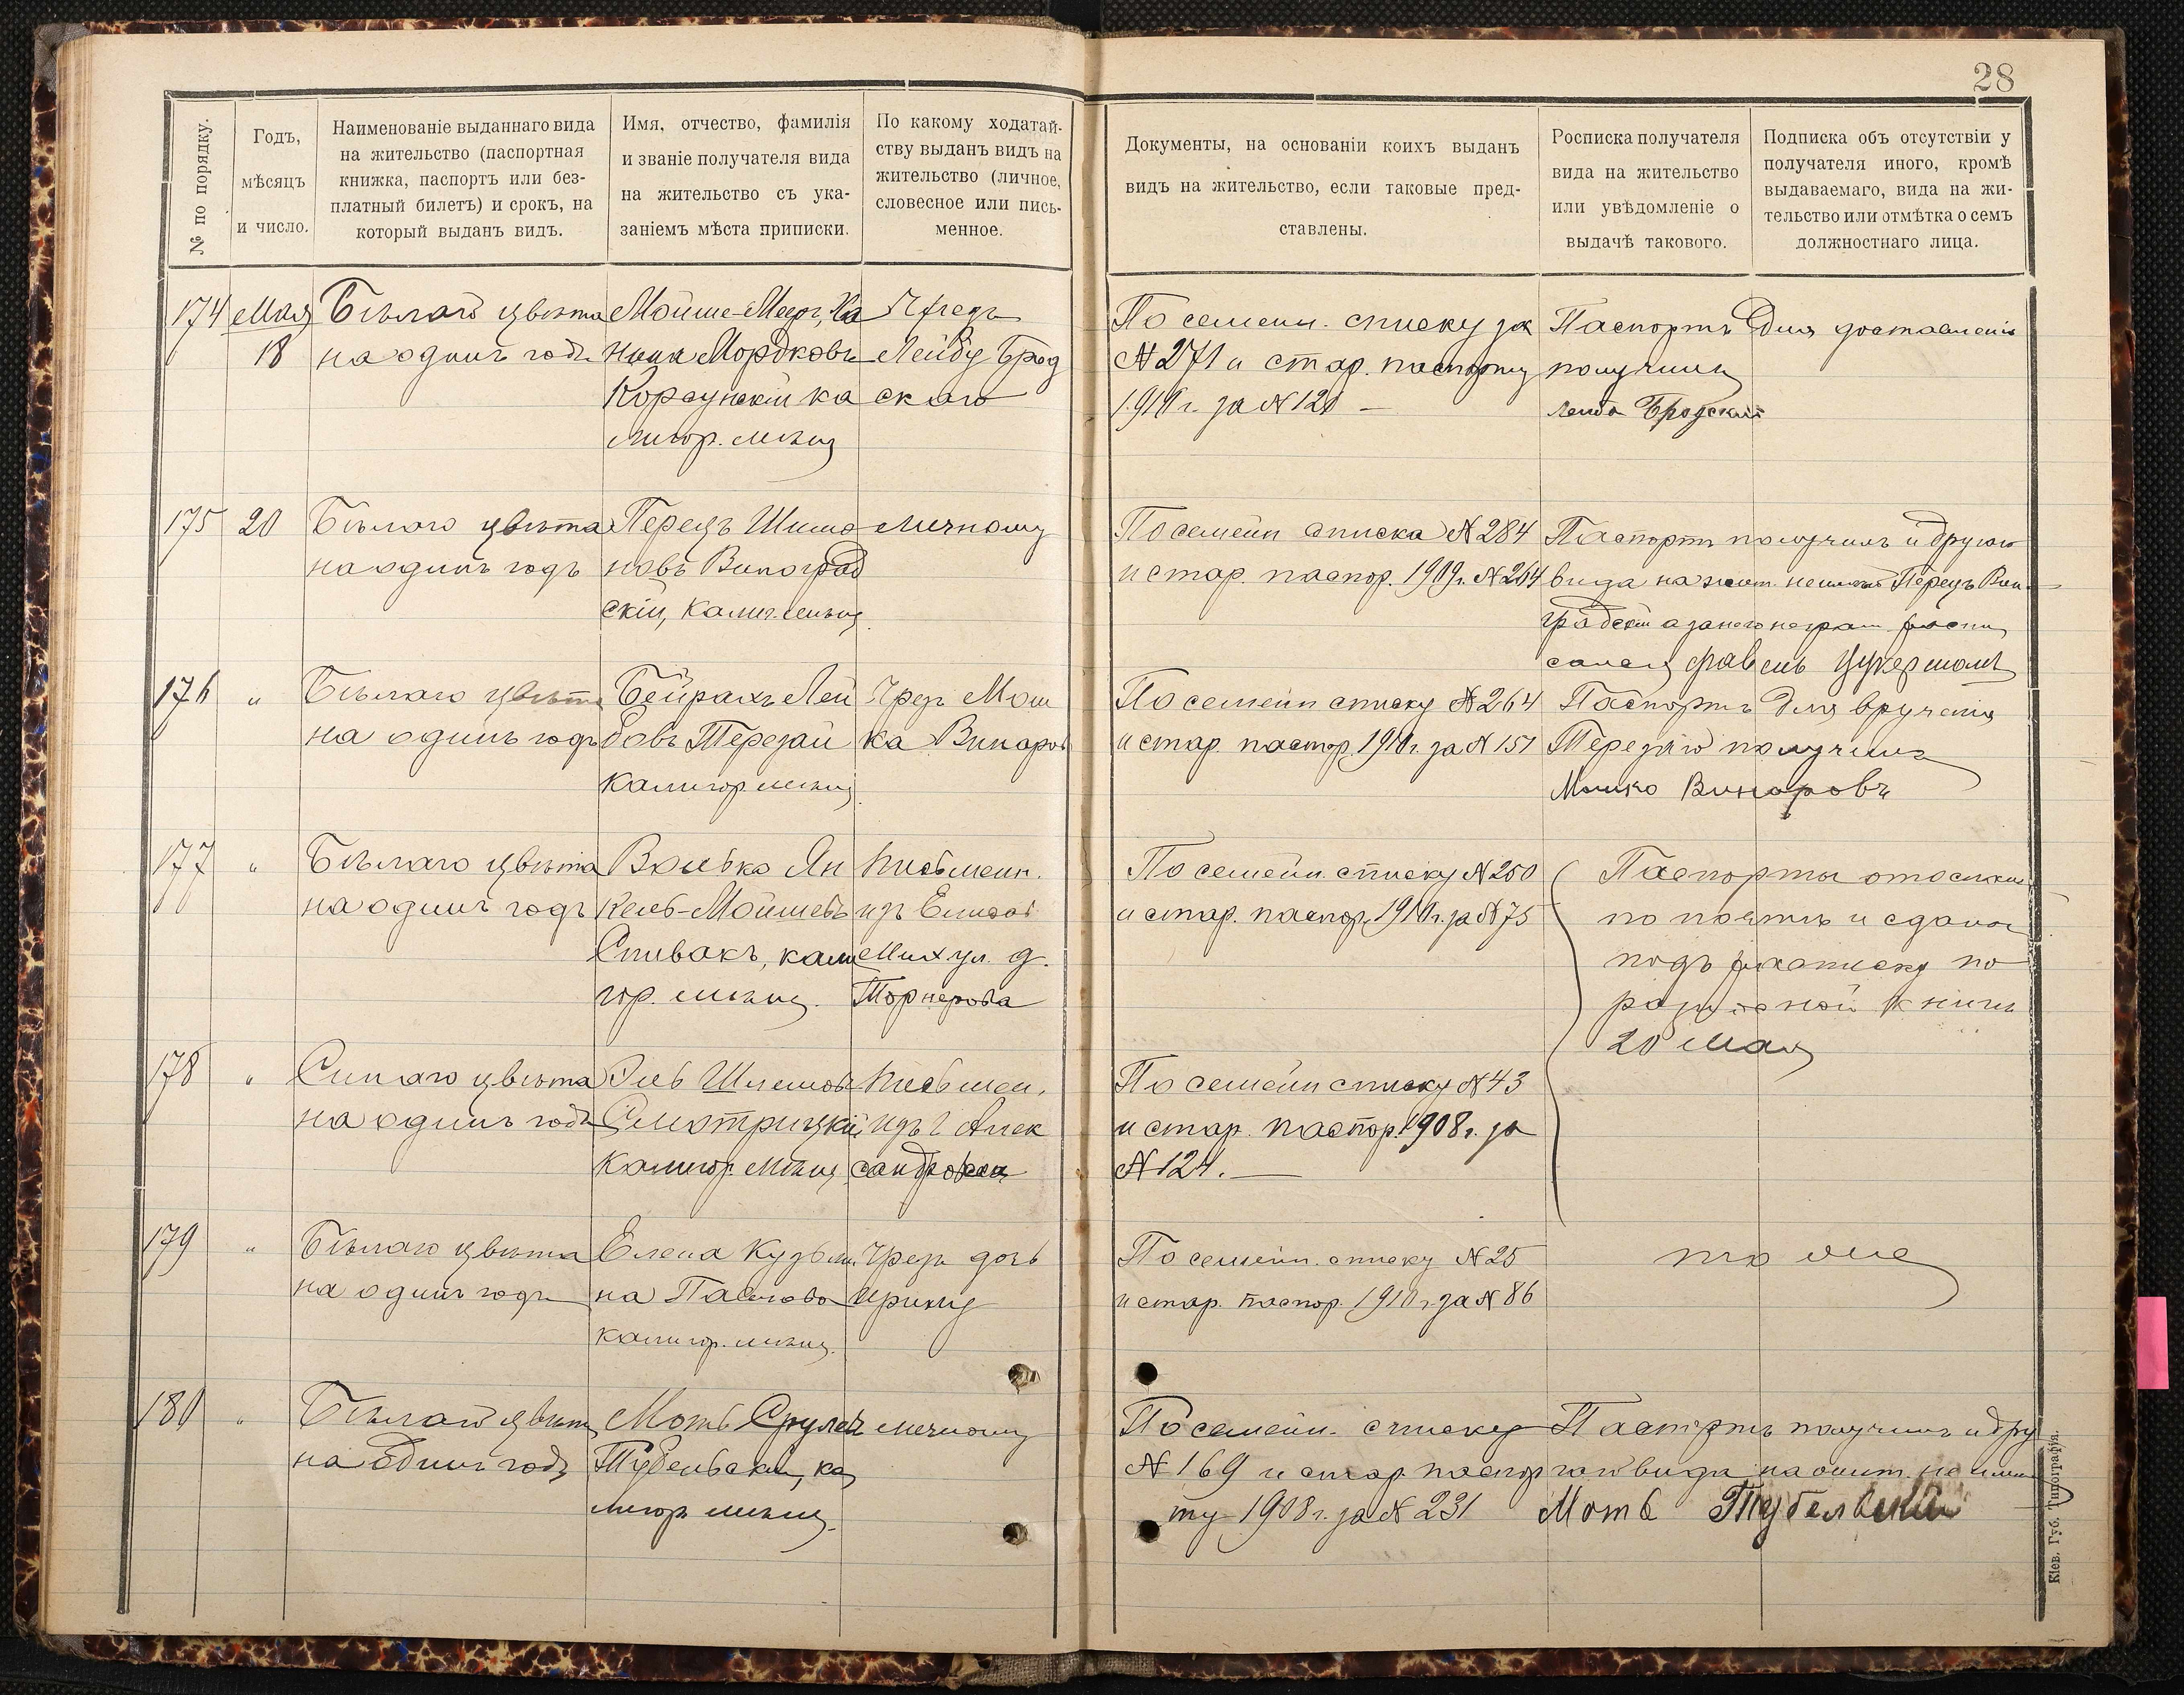 28
№ по порядку.
Годъ,
мѣсяцъ
и число.
Наименованіе выданнаго вида
на жительство (паспортная
книжка, паспортъ или без-
платный билетъ) и срокъ, на
который выданъ видъ.
Имя, отчество, фамилія
и званіе получателя вида
на жительство съ ука-
заніемъ мѣста приписки.
По какому ходатай-
ству выданъ видъ на
жительство (личное,
словесное или пись-
менное.
Документы, на основаніи коихъ выданъ
видъ на жительство, если таковые пред-
ставлены.
Росписка получателя
вида на жительство
или увѣдомленіе о
выдачѣ такового.
Подписка объ отсутствіи у
получателя иного, кромѣ
выдаваемаго, вида на жи-
тельство или отмѣтка о семъ
должностнаго лица.
174
Мая
18
Бѣлаго цвѣта
на одинъ годъ
Мойше-Мееръ, Ха
Мордковъ
Корсунскій ка
лигор. мѣщ
Чрезъ
Лейбу Брод
скаго
По семейн. списку за
№ 271 и стар. паспорту
1910 г. за № 120 —
Паспортъ для доставленія
получилъ
Лейба Бродскій
175
20
Бѣлаго цвѣта
на одинъ годъ
Перецъ Шимо
новъ Виноград
скій, Калиг. мѣщ
личному
По семейн списка № 284
и стар. паспор. 1909 г. № 264
Паспортъ получилъ и другого
вида на жит. не имѣю Перецъ Вин
градскій а за него неграм роспи
сался Цукерманъ
176
"
Бѣлаго цвѣта
на одинъ годъ
Бейрахъ Лей
бовъ Терезай
Калигор мѣщ
Чрез Мош
ка Винаров
По семейн списку № 264
и стар. паспор. 1910 г. за № 151
Паспортъ для врученія
получилъ
Мошко Винаровъ
177
"
Бѣлаго цвѣта
на одинъ годъ
Волько Ян
кель-Мойшевъ
Спивакъ, кали
гор. мѣщ.
письменн.
изъ Елисав
Мих ул. д.
Торнерова
По семейн. списку № 250
и стар. паспор. 1910 г. за № 75
Паспорты отосланы
по почтѣ и сданы
подъ росписку по
разносной книгѣ
20 Мая
178
"
Синяго цвѣта
на одинъ годъ
Эль Шлемовъ
Смотрицкій
Калигор. мѣщ
письмен.
изъ г Алек
сандровска
По семейн списку № 43
и стар. паспор. 1908 г. за
№ 124. —
179
"
Бѣлаго цвѣта
на одинъ годъ
Елена Кузьми
на Павлова
калигор. мѣщ.
Чрезъ дочь
Ирину
По семейн. списку № 25
и стар. паспор. 1910 г. за № 86
то же
180
"
Бѣлаго цвѣта
на одинъ годъ
Мотъ Срулев
Тубельскій, ка
лигор мѣщ.
личному
По семейн. списку
№ 169 и стар. паспор
ту 1908 г. за № 231
Паспортъ получилъ и дру
гого вида на жит. не имѣю
Моть Тубельскій
Кіев. Губ. Типографія.